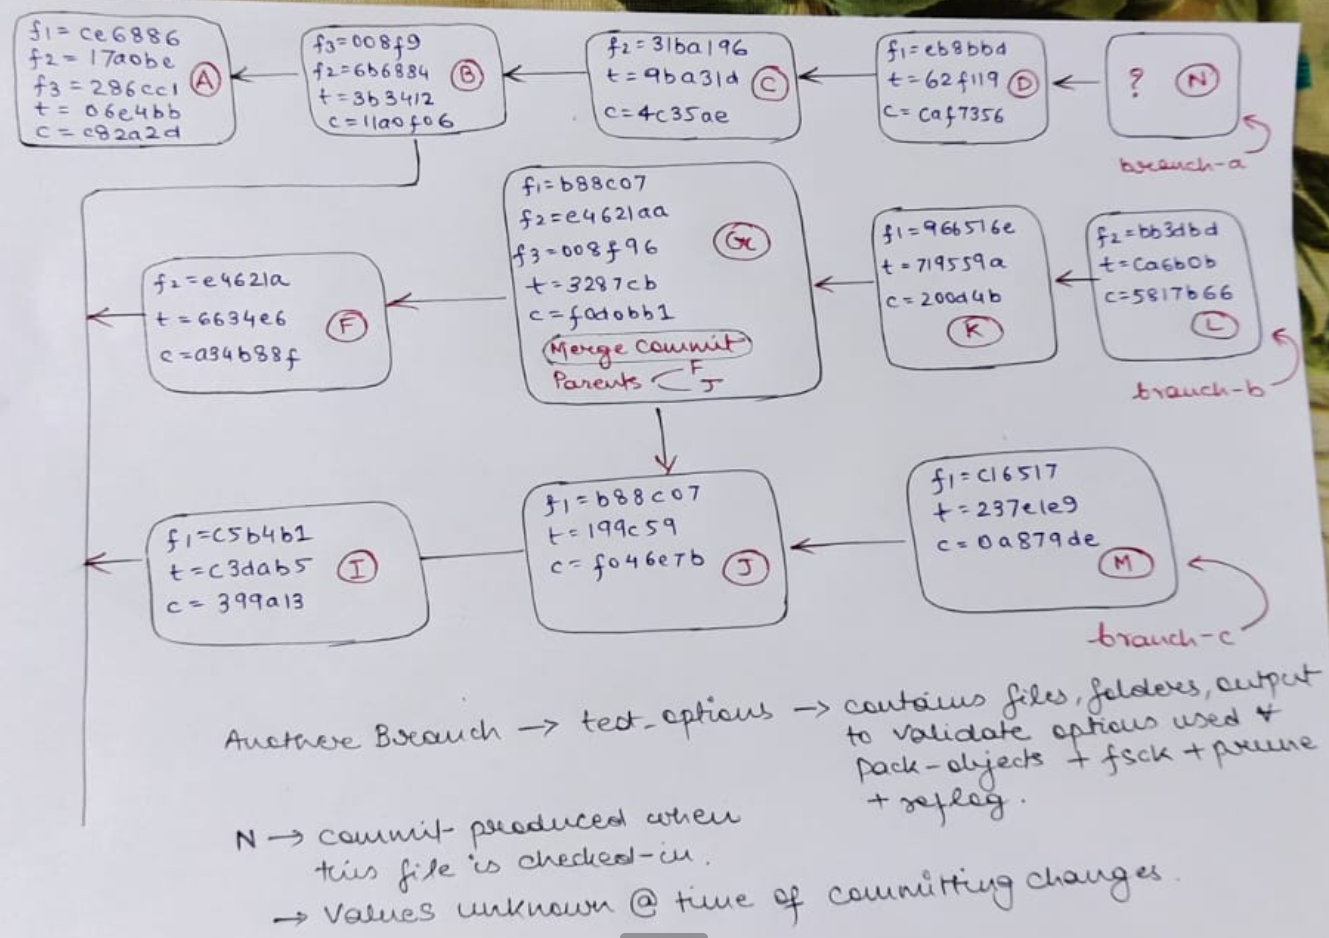 f1 = ce6886
f2 = 17a0be
f3 = 286cc1
t = 06e4bb
c = c82a2d
A
f3=008f9
f2=6b6884
t=3b3412
c=11a0f06
B
f2=31ba196
t=9ba31d
c=4c35ae
C
f1=eb8bbd
t=62f119
c=caf7356
D
?
N
branch-a
f1=b88c07
f2=e4621aa
f3=008f96
t=3287cb
c=fad0bb1
G
Merge commit
Parents F
J
f1=966516e
t=719559a
c=200d4b
K
f2=bb3dbd
t=ca6b0b
c=5817b66
L
branch-b
f2=e4621a
t=6634e6
c=a34b88f
F
f1=c5b4b1
t=c3dab5
c=399a13
I
f1=b88c07
t=199c59
c=f046e7b
J
f1=c16517
t=237e1e9
c=0a879de
M
branch-c
Another Branch → test_options → contains files, folders, output
to validate options used &
pack-objects + fsck + prune
+ reflog.
N → commit produced when
this file is checked-in.
→ Values unknown @ time of committing changes.